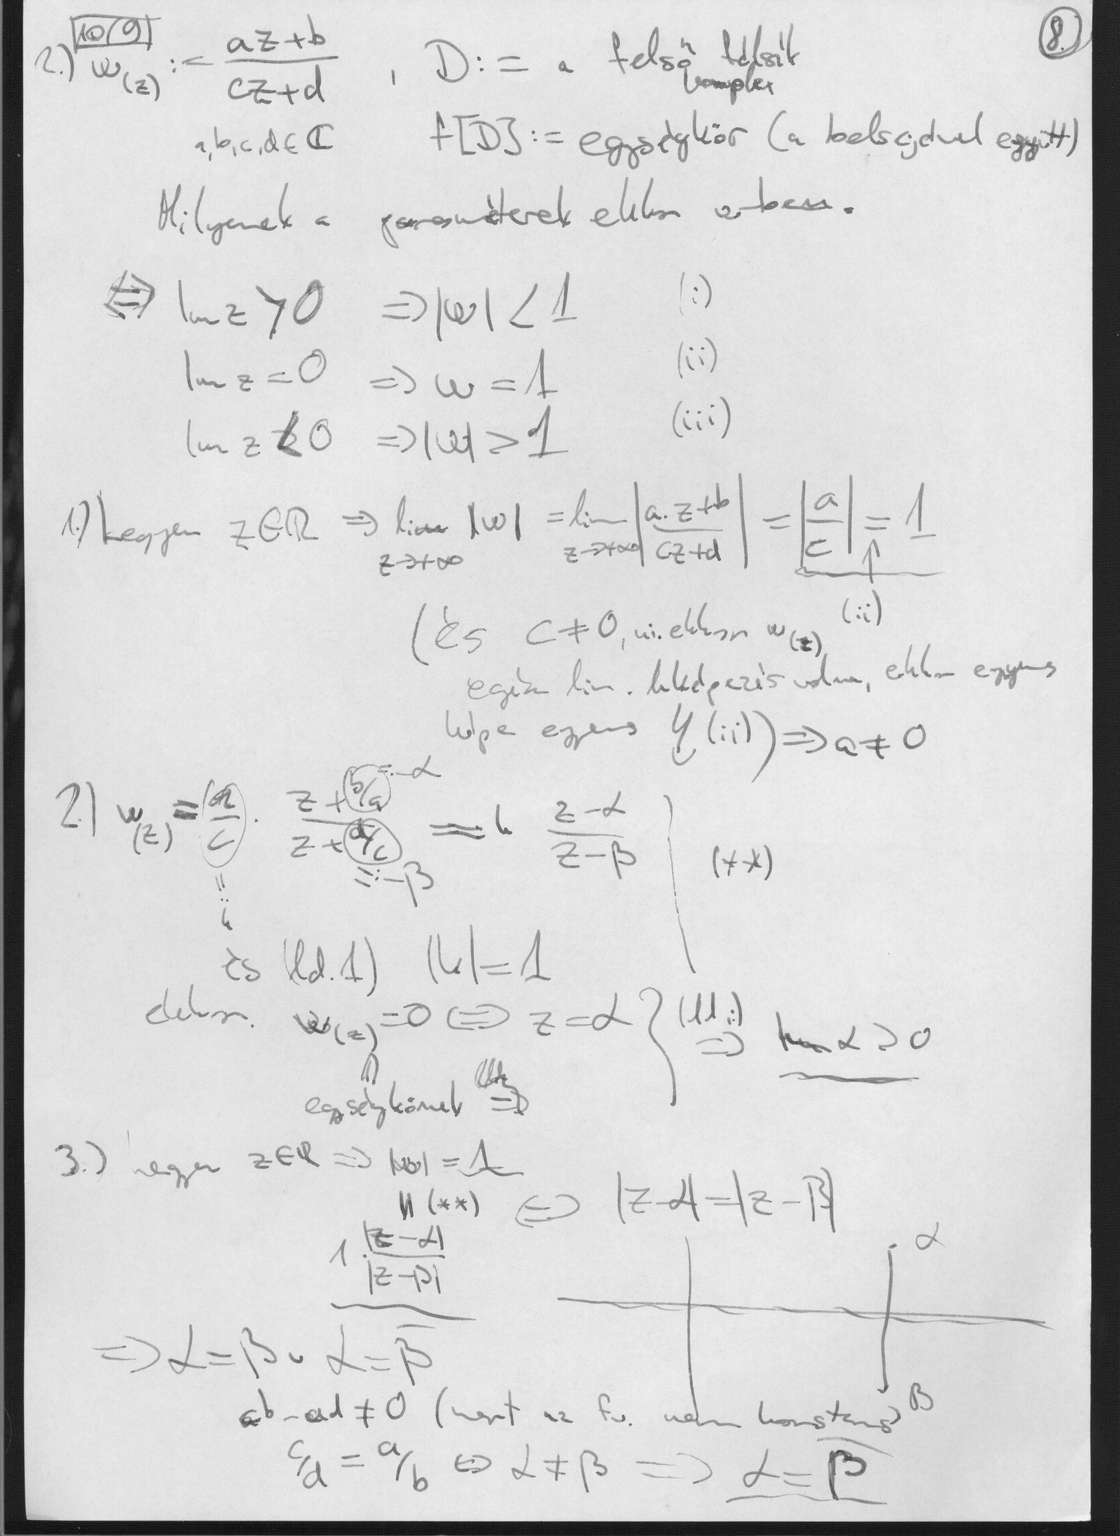 10/9
8.
2.) w(z) := (az+b)/(cz+d) , D := a felső félsík
komplex
a,b,c,d ∈ ℂ f[D] := egységkör (a belsejével együtt)
Milyenek a paraméterek ekkor w-ben.
⇔ Im z > 0 ⇒ |w| < 1 (i)
Im z = 0 ⇒ w = 1 (ii)
Im z < 0 ⇒ |w| > 1 (iii)
1.) Legyen z∈ℝ ⇒ lim z→+∞ |w| = lim z→+∞ |(a·z+b)/(cz+d)| = |a/c| = 1
(ii)
(és c ≠ 0, ui. ekkor w(z)
egész lin. leképezés volna, ekkor egyenes
képe egyenes ↯ (ii)) ⇒ a ≠ 0
2.) w(z) = a/c · (z + b/a)/(z + d/c) = k (z-α)/(z-β) (**)
=: -α
=: -β
=: k
és (ld. 1) |k| = 1
ekkor w(z) = 0 ⇔ z = α } ⇒ Im α > 0
egységkörnek ⇒
3.) legyen z∈ℝ ⇒ |w| = 1
|| (**) ⇔ |z-α| = |z-β|
1·|z-α|/|z-β|
α
⇒ α = β v α = β̄
β
ab-ad ≠ 0 (mert az fv. nem konstans)
c/d = a/b ⇔ α ≠ β ⇒ α = β̄